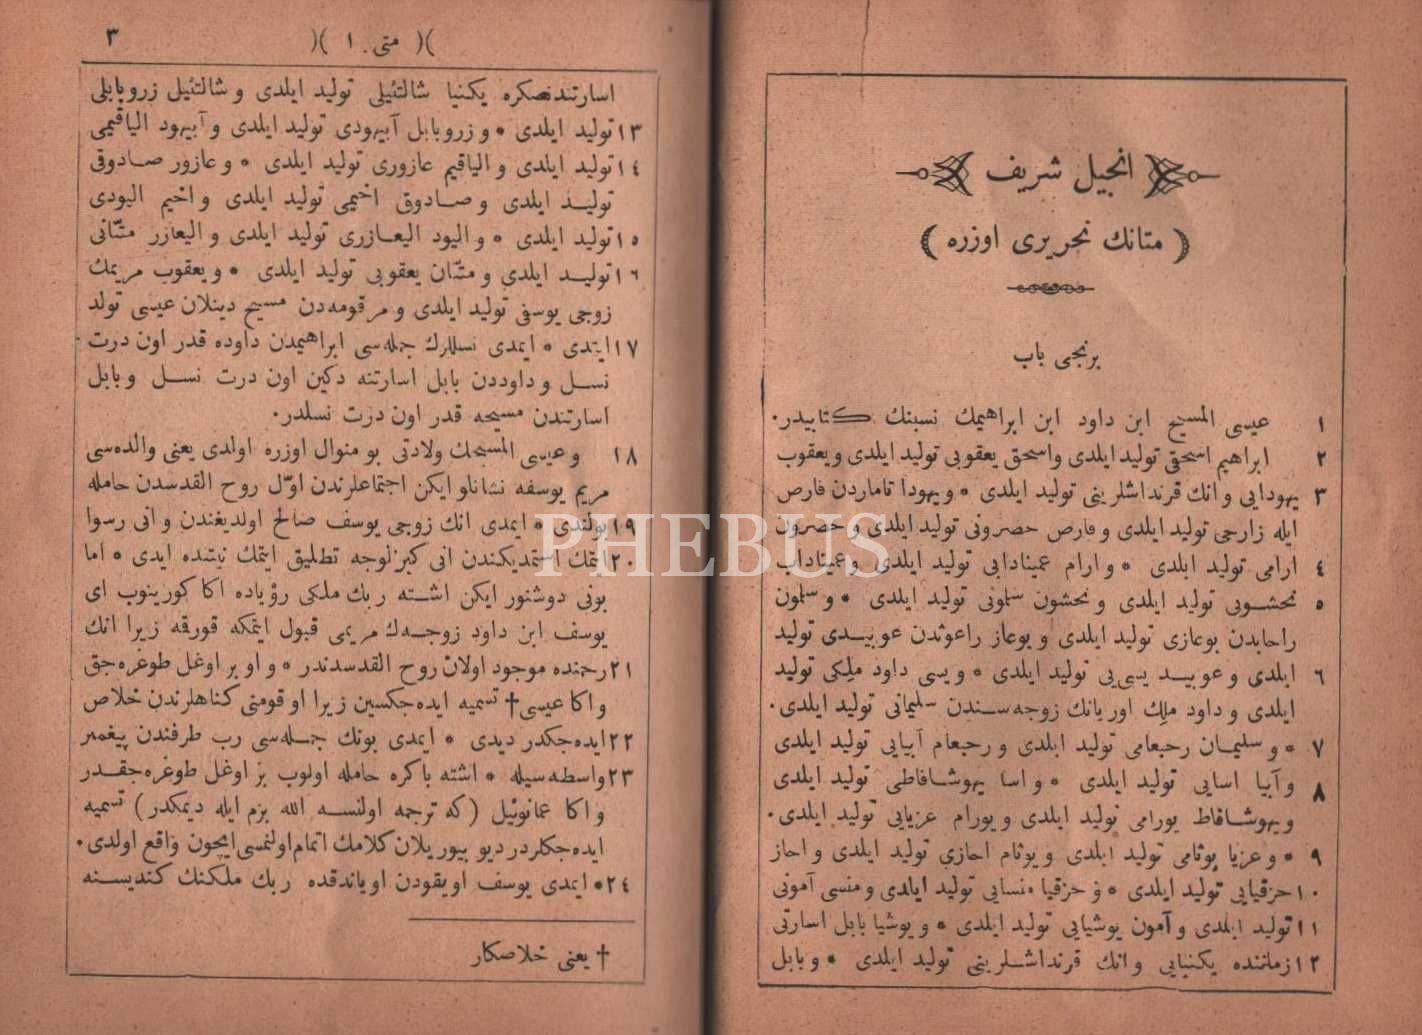 انجیل شریف
( متانك تحریری اوزره )
برنجی باب
١ عیسی المسیح ابن داود ابن ابراهیمك نسبنك كتابیدر.
٢ ابراهیم اسحقی تولید ایلدی واسحق یعقوبی تولید ایلدی ویعقوب
٣ یهودایی و انك قرنداشلرینی تولید ایلدی * و یهودا تاماردن فارص
ایله زارحی تولید ایلدی و فارص حصرونی تولید ایلدی و حصرون
٤ ارامی تولید ایلدی * و ارام عمینادابی تولید ایلدی و عمیناداب
٥ نحشونی تولید ایلدی و نحشون سلمونی تولید ایلدی * و سلمون
راحابدن بوعازی تولید ایلدی و بوعاز راعوثدن عوبیدی تولید
٦ ایلدی و عوبید یسی‌یی تولید ایلدی * و یسی داود ملكی تولید
ایلدی و داود ملك اوریانك زوجه‌سندن سلیمانی تولید ایلدی.
٧ * و سلیمان رحبعامی تولید ایلدی و رحبعام آبیایی تولید ایلدی
٨ و آبیا اسایی تولید ایلدی * و اسا یهوشافاطی تولید ایلدی
و یهوشافاط یورامی تولید ایلدی و یورام عزیایی تولید ایلدی.
٩ * و عزیا یوثامی تولید ایلدی و یوثام احازی تولید ایلدی و احاز
١٠ حزقیایی تولید ایلدی * و حزقیا منسایی تولید ایلدی و منسی آمونی
١١ تولید ایلدی و آمون یوشیایی تولید ایلدی * و یوشیا بابل اسارتی
١٢ زماننده یكنیایی و انك قرنداشلرینی تولید ایلدی * و بابل
)( متی ١ )( ٣
اسارتندنصكره یكنیا شالتئیلی تولید ایلدی و شالتئیل زروبابلی
١٣ تولید ایلدی * و زروبابل آبیهودی تولید ایلدی و آبیهود الیاقیمی
١٤ تولید ایلدی و الیاقیم عازوری تولید ایلدی * و عازور صادوقی
تولید ایلدی و صادوق اخیمی تولید ایلدی و اخیم الیودی
١٥ تولید ایلدی * و الیود الیعازری تولید ایلدی و الیعازر متّانی
١٦ تولید ایلدی و متّان یعقوبی تولید ایلدی * و یعقوب مریمك
زوجی یوسفی تولید ایلدی و مرقومه‌دن مسیح دینلان عیسی تولد
١٧ ایتدی * ایمدی نسللرك جمله‌سی ابراهیمدن داوده قدر اون درت
نسل و داوددن بابل اسارتنه دكین اون درت نسل و بابل
اسارتندن مسیحه قدر اون درت نسلدر.
١٨ و عیسی المسیحك ولادتی بو منوال اوزره اولدی یعنی والده‌سی
مریم یوسفه نشانلو ایكن اجتماعلرندن اوّل روح القدسدن حامله
١٩ بولندی * ایمدی انك زوجی یوسف صالح اولدیغندن و انی رسوا
٢٠ ایتمك استمدیكندن انی كیزلوجه تطلیق ایتمك نیتنده ایدی * اما
بونی دوشنور ایكن اشته ربك ملكی رؤیاده اكا كورینوب ای
یوسف ابن داود زوجه‌ك مریمی قبول ایتمكه قورقه زیرا انك
٢١ رحمنده موجود اولان روح القدسدندر * و او بر اوغل طوغره‌جق
و اكا عیسی† تسمیه ایده‌جكسین زیرا او قومنی كناهلرندن خلاص
٢٢ ایده‌جكدر دیدی * ایمدی بونك جمله‌سی رب طرفندن پیغمبر
٢٣ واسطه‌سیله * اشته باكره حامله اولوب بر اوغل طوغره‌جقدر
و اكا عمانوئیل (كه ترجمه اولنسه الله بزم ایله دیمكدر) تسمیه
ایده‌جكلردر دیو بیوریلان كلامك اتمام اولنمسی ایچون واقع اولدی.
٢٤ * ایمدی یوسف اویقودن اویاندقده ربك ملكنك كندیسنه
† یعنی خلاصكار
PHEBUS